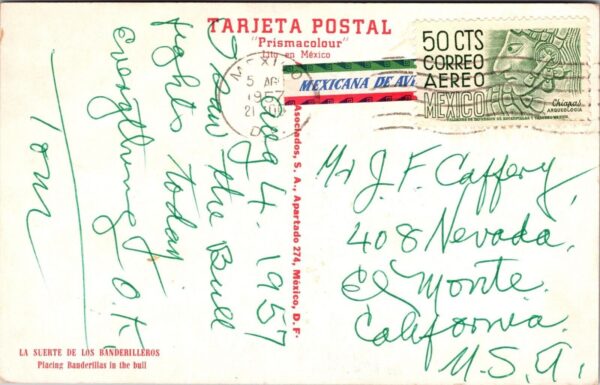 TARJETA POSTAL
"Prismacolour"
Lito en México
MEXICO
5 AGO
1957
D. F.
MEXICANA DE AVI
50 CTS
CORREO
AEREO
MEXICO
Chiapas
ARQUEOLOGIA
Aug 4. 1957
I saw the Bull
fights today
everything O.K.
Tom
Asociados, S. A., Apartado 274, México, D. F.
Mr J. F. Caffery,
408 Nevada.
El Monte.
California.
U.S.A.
LA SUERTE DE LOS BANDERILLEROS
Placing Banderillas in the bull